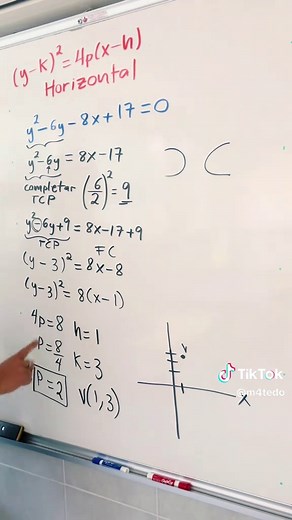 (y-k)² = 4p(x-h)
Horizontal
y² - 6y - 8x + 17 = 0
y² - 6y = 8x - 17
completar (6/2)² = 9
TCP
y² - 6y + 9 = 8x - 17 + 9
TCP FC
(y-3)² = 8x - 8
(y-3)² = 8(x-1)
4p = 8 h = 1
P = 8/4 k = 3
P = 2 V(1,3)
V
X
TikTok
@m4tedo